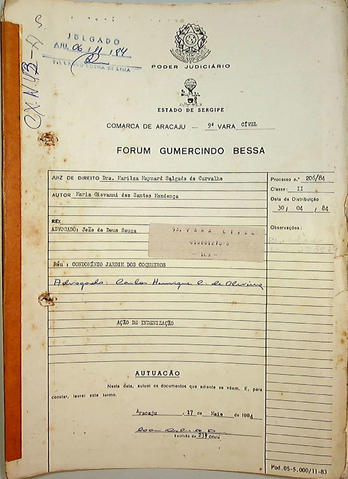 JULGADO
EM, 06/11/84
CX. Nº
PODER JUDICIÁRIO
ESTADO DE SERGIPE
COMARCA DE ARACAJU - 9ª VARA CÍVEL
FORUM GUMERCINDO BESSA
JUIZ DE DIREITO Dra. Marilza Maynard Salgado de Carvalho
Processo n.º 206/84
Classe: II
AUTOR Maria Giovanni dos Santos Mendonça
Data da Distribuição
30, 04, 84
RÉU
ADVOGADO: João de Deus Souza
Observações:
9a. VARA CIVEL
Réu : CONDOMÍNIO JARDIM DOS COQUEIROS
Advogado: Carlos Henrique C. de Oliveira
AÇÃO DE INDENIZAÇÃO
AUTUAÇÃO
Nesta data, autuei os documentos que adiante se vêem. E, para
constar, lavrei este termo.
Aracaju, 17 de Maio de 1984
Escrivão do Ofício
Pod. 05-5.000/11-83